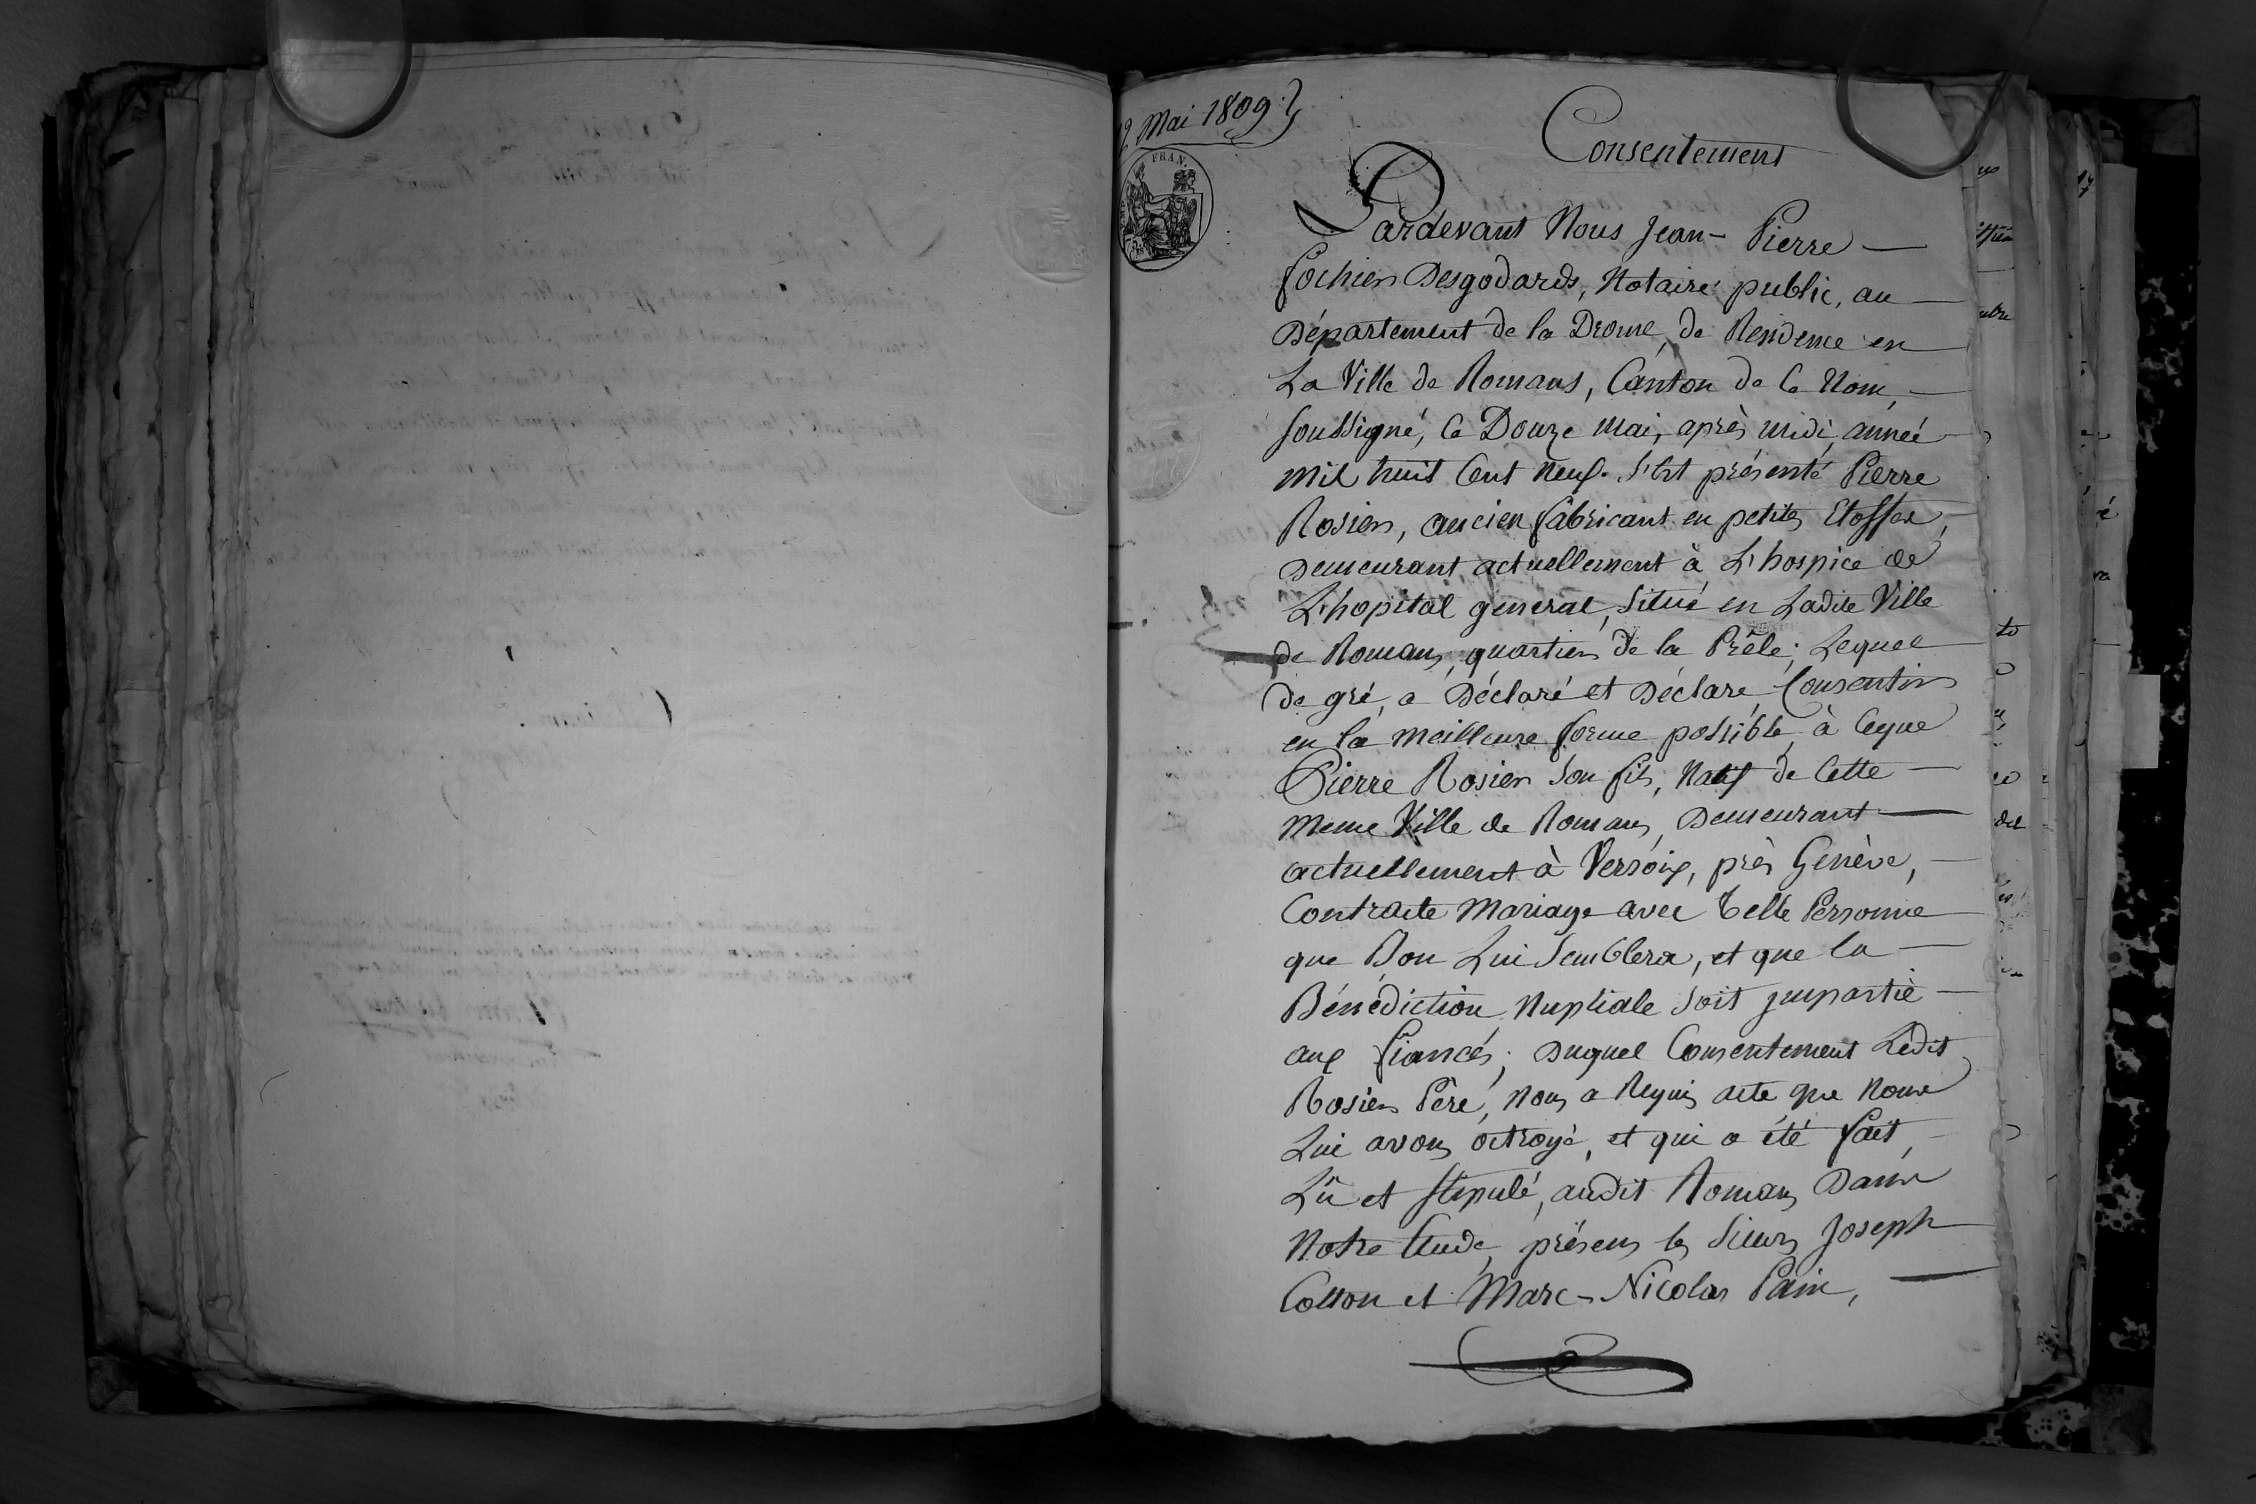 12 Mai 1809
FRAN.
Consentement
Pardevant Nous Jean- Pierre
fochier Desgodards, Notaire public, au
Département de la Drome, de Residence en
La Ville de Romans, Canton de Ce Nom,
soussigné, Ce Douze Mai, après midi, année
Mil huit Cent Neuf. S'Est présenté Pierre
Rosier, ancien fabricant en petites Etoffes,
Demeurant actuellement à L'hospice de
L'hopital general, situé en Ladite Ville
de Romans, quartier de la Prêle; Lequel
de gré, a Déclaré et Déclare, Consentir
en la Meilleure forme possible, à Ceque
Pierre Rosier son fils, Natif de Cette
Meme Ville de Romans, Demeurant
actuellement à Versoix, près Genève,
Contracte Mariage avec telle Personne
que Bon Lui Semblera, et que la
Bénédiction Nuptiale soit jmpartie
aux fiancés; Duquel Consentement Ledit
Rosier Père, Nous a Requis acte que Nous
Lui avons octroyé, et qui a été fait,
Lû et stipulé, audit Romans, Dans
Notre Etude, présens les Sieurs Joseph
Colton et Marc-Nicolas Pain,